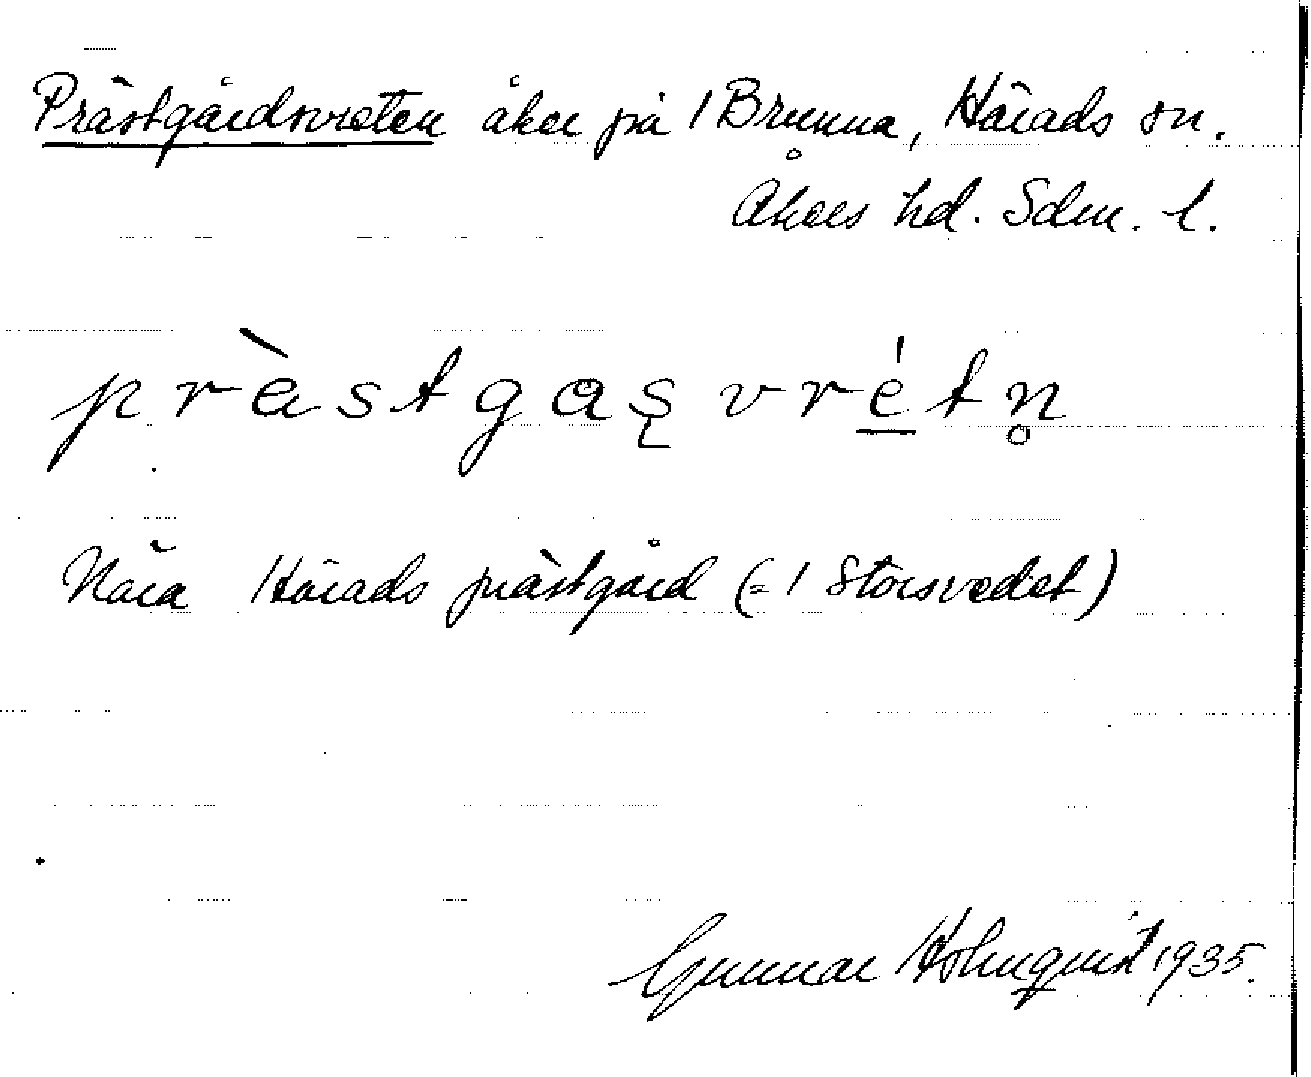 Prästgårdsvreten åker på 1 Brunna, Härads sn.
Åkers hd. Sdm. l.
prästgaşvrétn̥
Nära Härads prästgård (= 1 Storsvedet)
Gunnar Holmquist 1935.